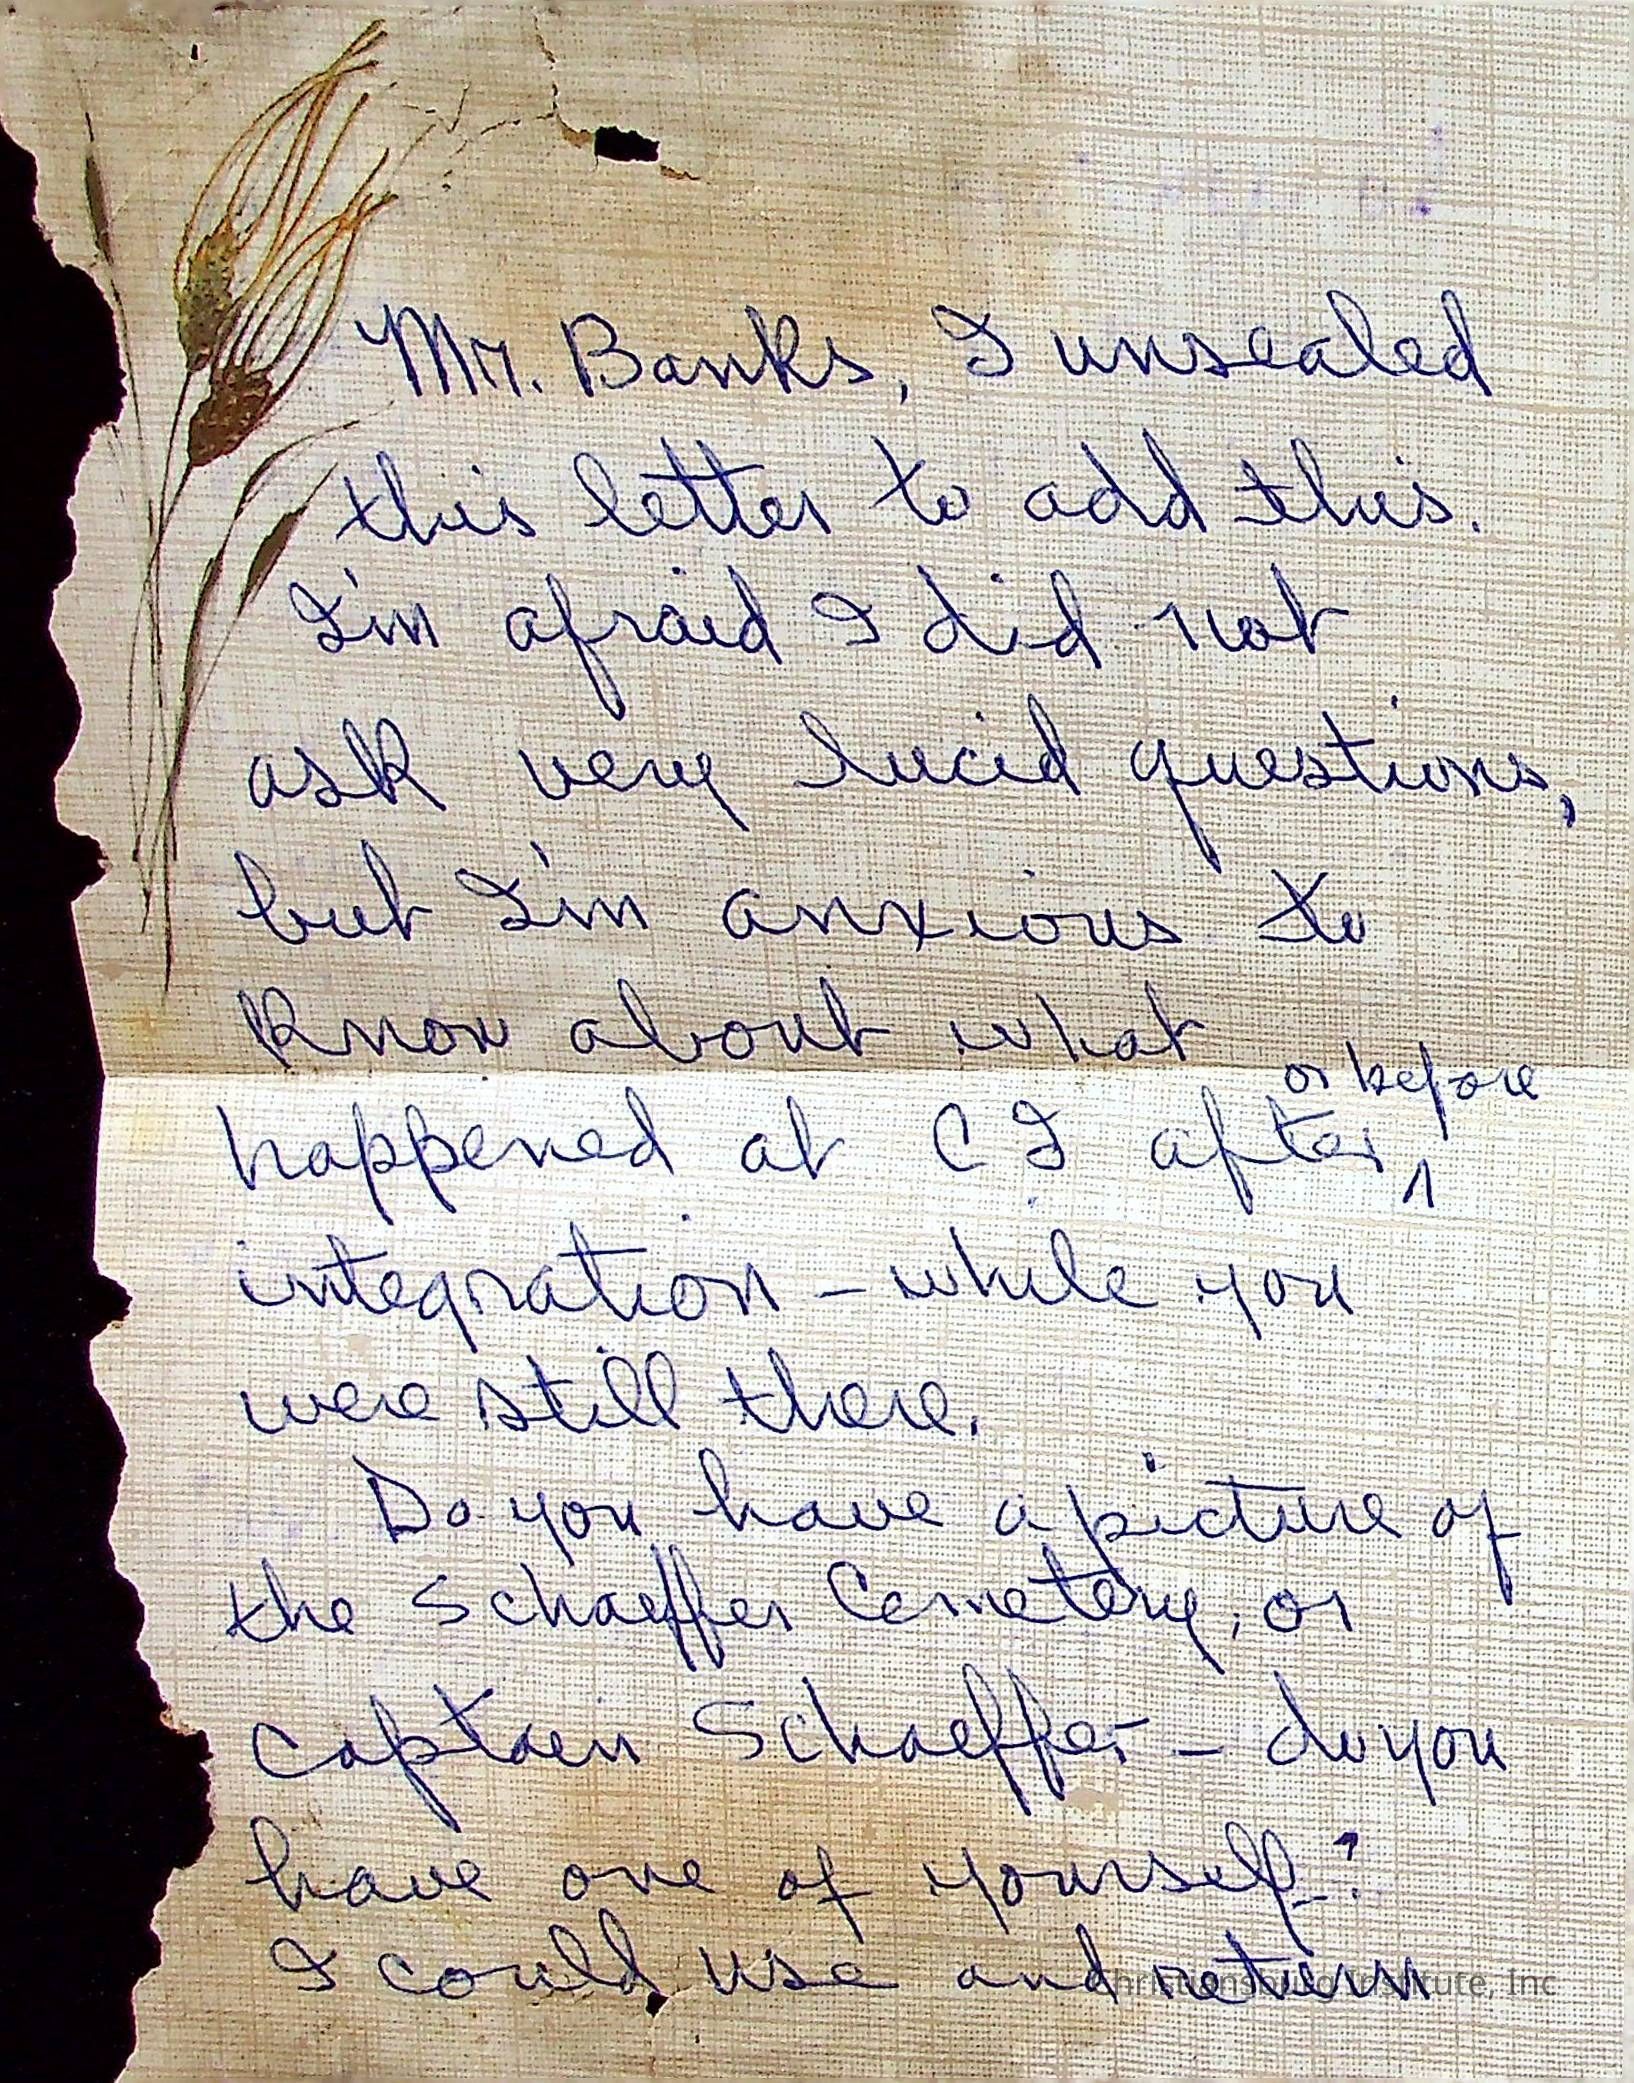 Mr. Banks, I unsealed
this letter to add this.
I'm afraid I did not
ask very lucid questions,
but I'm anxious to
know about what
happened at C I after ^ or before
integration – while you
were still there.
Do you have a picture of
the Schaeffer Cemetery, or
Captain Schaeffer – do you
have one of yourself?
I could use and return
Christiansburg Institute, Inc